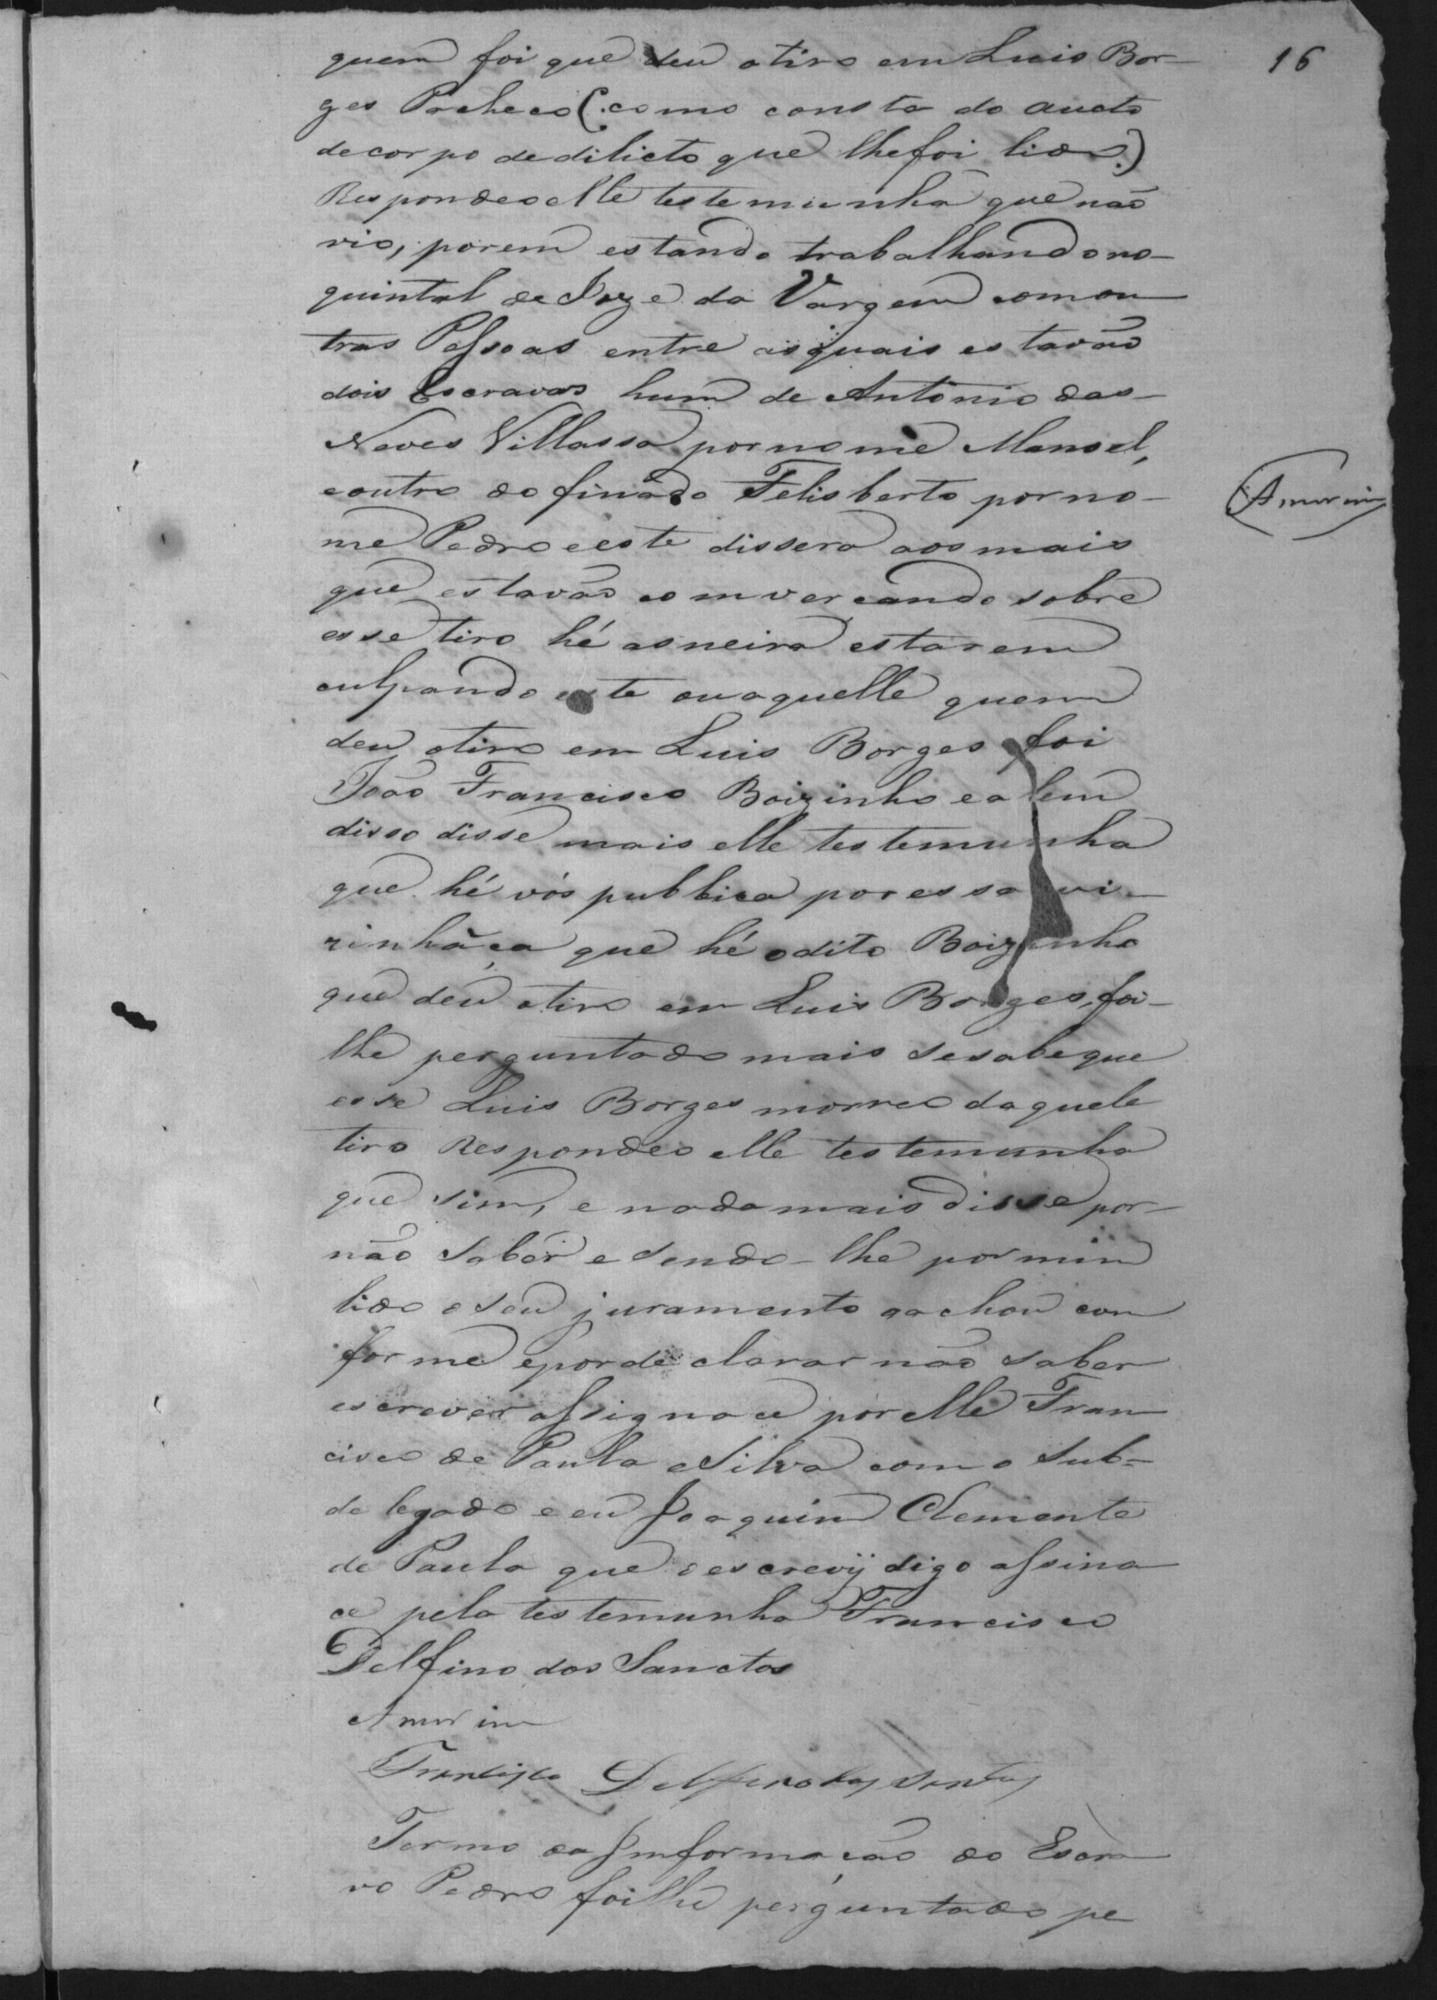 16
quem foi que deu otiro em Luis Bor-
ges Pacheco (:como consta do aucto
de corpo de dilicto que lhefoi lido:)
Respondeo elle testemunha que não
vio, porem estando trabalhando no-
quintal de Joze da Vargem comou
tras Pessoas entre asquais estavão
dois Escravos hum de Antônio das-
Neves Villassa por nome Manoel,
eoutro do finado Felisberto por no-
me Pedro eeste dissera aos mais
que estavão comverçando sobre
esse tiro hé asneira estarem
culpando este ou aquelle quem
deu otiro em Luis Borges foi
João Francisco Boizinho ealem
disso disse mais elle testemunha
que hé vós publica por essa vi-
zinhãça que hé odito Boizinho
que deu otiro em Luis Borges, foi-
lhe perguntado mais sesabe que
esse Luis Borges morreo daquele
tiro Respondeo elle testemunha
que sim, e nada mais disse por-
não saber e sendo-lhe por mim
lido oseu juramento oachou com
forme epor declarar não saber
escrever assignace por elle Fran
cisco de Paula eSilva como Sub-
delegado e eu Joaquim Clemente
de Paula que oescrevij digo assina
ce pela testemunha Francisco
Delfino dos Sanctos
Amorim
Francisco Delfino dos Santos
Termo da Imformação do Escra
vo Pedro foilhe perguntado pe
Amorim